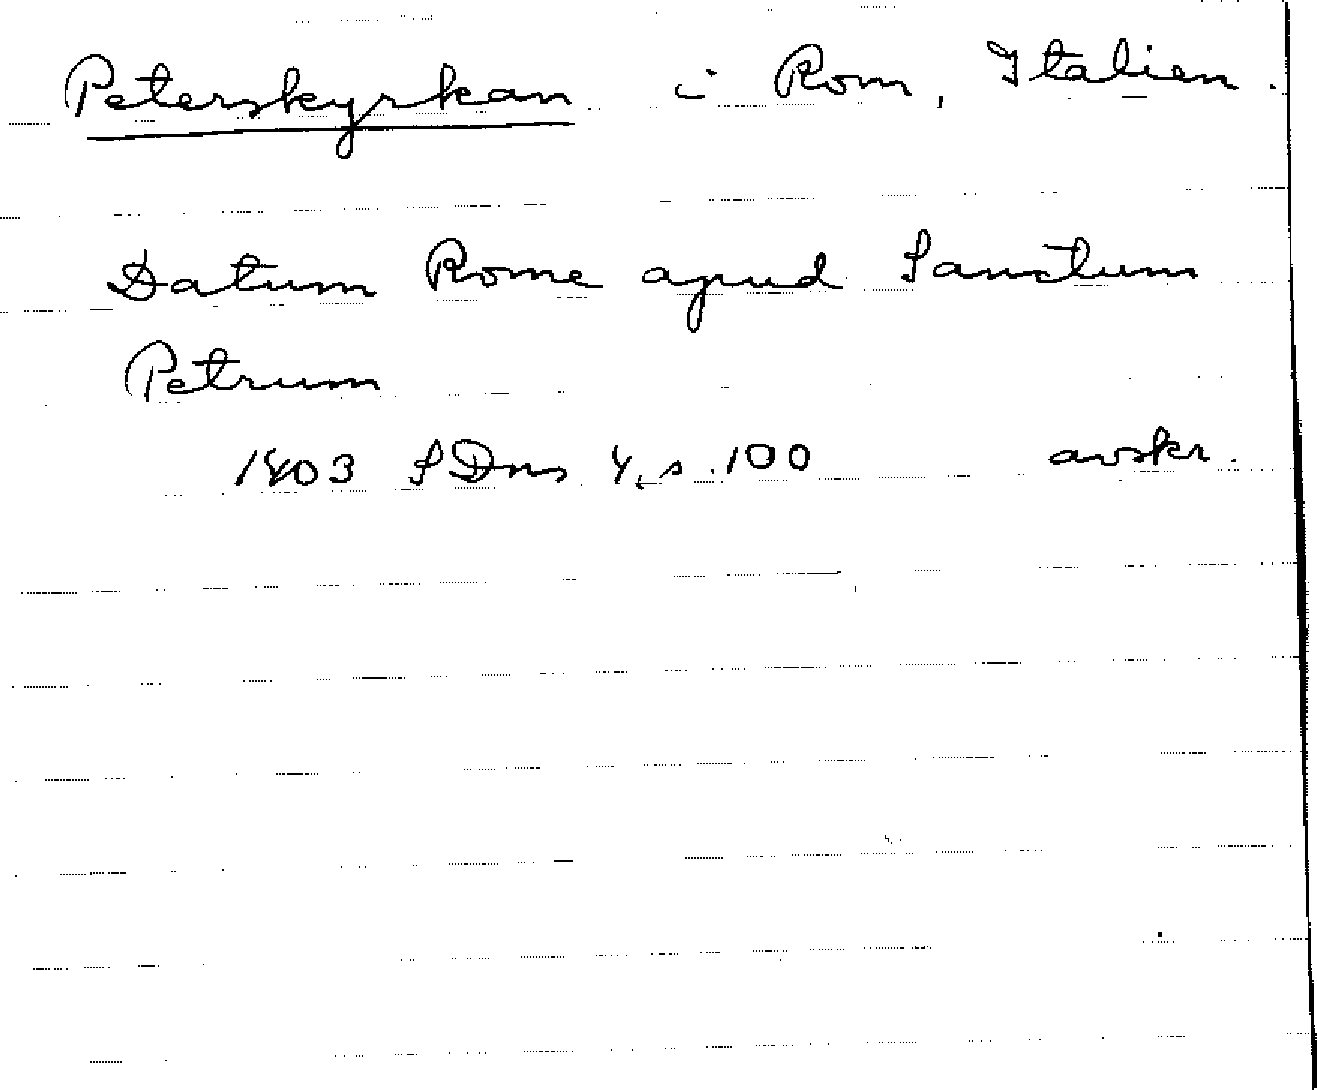 Peterskyrkan i Rom, Italien.
Datum Rome apud Sanctum
Petrum
1403 SDns 4, s. 100 avskr.